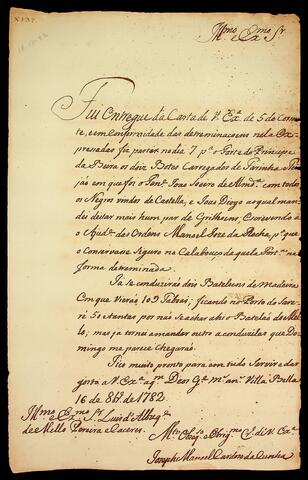 Illmo e Exmo Sr
Fui entregue da Carta de V. Exa de 5 do Corren
te, e em Conformidade das determinaçoens nela Ex
presadas fis partir no dia 7 pa o Forte do Principe
da Beira os dois Botes Carregados de Farinha e Fei
jão em que foi o Fente João Severo de Alma com todos
os Negros vindos de Castella, e João Diogo aqual man
dei deitar mais hum par de Grilhoens, Escrevendo a
o Ajude das Ordens Manoel Joze da Rocha, pa que
o Conservase Seguro no Calabouço daquela Forta na
forma determinada.
Já se conduzirão dois Bateloens de Madeira
Com que vierão 103 Taboas; ficando no Porto do
50 e tantas, por não se achar ali o Batelão de Mel
lo; mas já tornei amandar outro a conduzilas que Do
mingo me parece chegará.
Fico muito pronto para em tudo Servir e dar
gosto a V. Exa aqm Deos Ge ms ans Villa Bella
16 de 8bro de 1782
Illmo e Exmo Sr Luis d'Albuqe
de Mello Pereira e Caceres.
Mto Obrigo Cro de V. Exa
Joseph Manoel Cardozo da Cunha